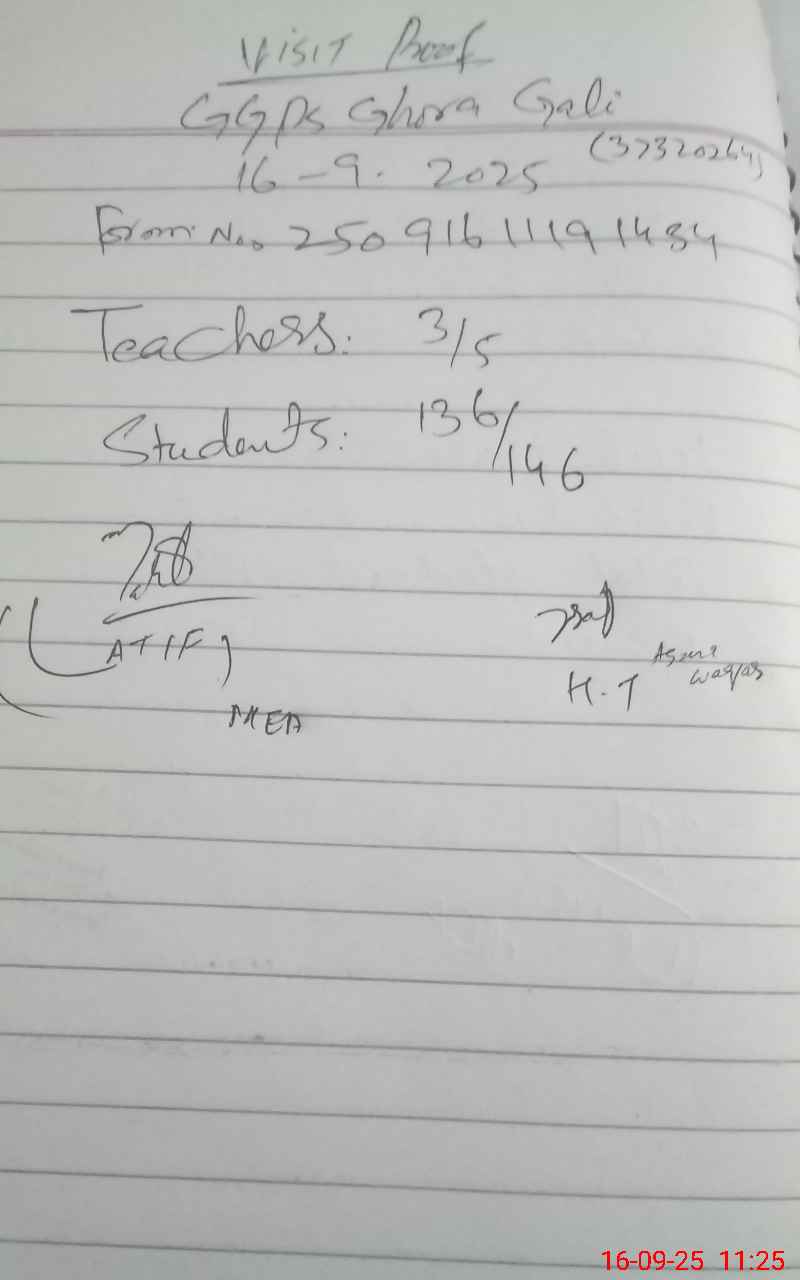 VISIT Proof
GGPS Ghora Gali
(37320264)
16-9-2025
Form No. 25091611191434
Teachers: 3/5
Students: 136/146
(ATIF)
MEA
H.T
Waqas
16-09-25 11:25